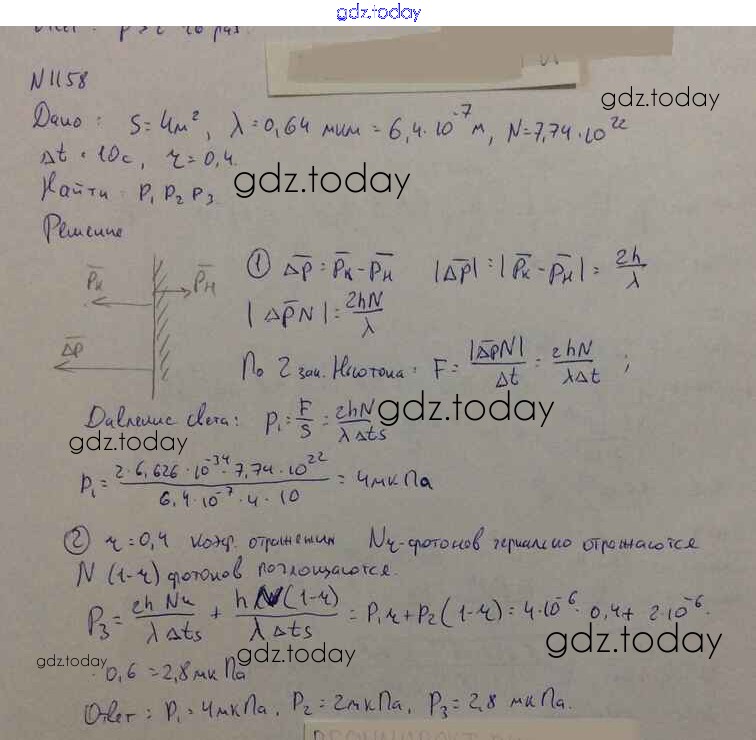 gdz.today
N1158
gdz.today
Дано: S=4м², λ=0,64 мкм = 6,4·10⁻⁷м, N=7,74·10²²
Δt = 10с, r=0,4.
Найти: P₁ P₂ P₃
gdz.today
Решение
P̄к P̄н
Δp̄
① Δp̄ = P̄к - P̄н |Δp̄| = |P̄к - P̄н| = 2h/λ
|Δp̄N| = 2hN/λ
По 2 зак. Ньютона: F = |Δp̄N|/Δt = 2hN/λΔt ;
Давление света: P₁ = F/S = 2hN/λΔts
gdz.today
gdz.today
P₁ = 2·6,626·10⁻³⁴·7,74·10²²/6,4·10⁻⁷·4·10 = 4мкПа
② r=0,4 коэф. отражения Nr-фотонов зеркально отражаются
N(1-r) фотонов поглощаются.
P₃ = 2hNr/λΔts + hN(1-r)/λΔts = P₁r + P₂(1-r) = 4·10⁻⁶·0,4 + 2·10⁻⁶·
gdz.today
gdz.today
gdz.today
·0,6 = 2,8мкПа
Ответ: P₁=4мкПа, P₂=2мкПа, P₃=2,8 мкПа.